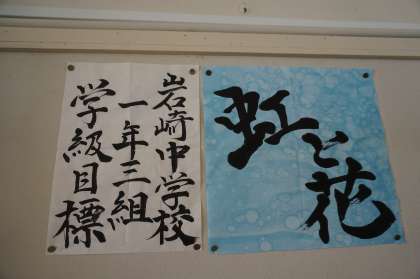 岩崎中学校
一年三組
学級目標
虹と花